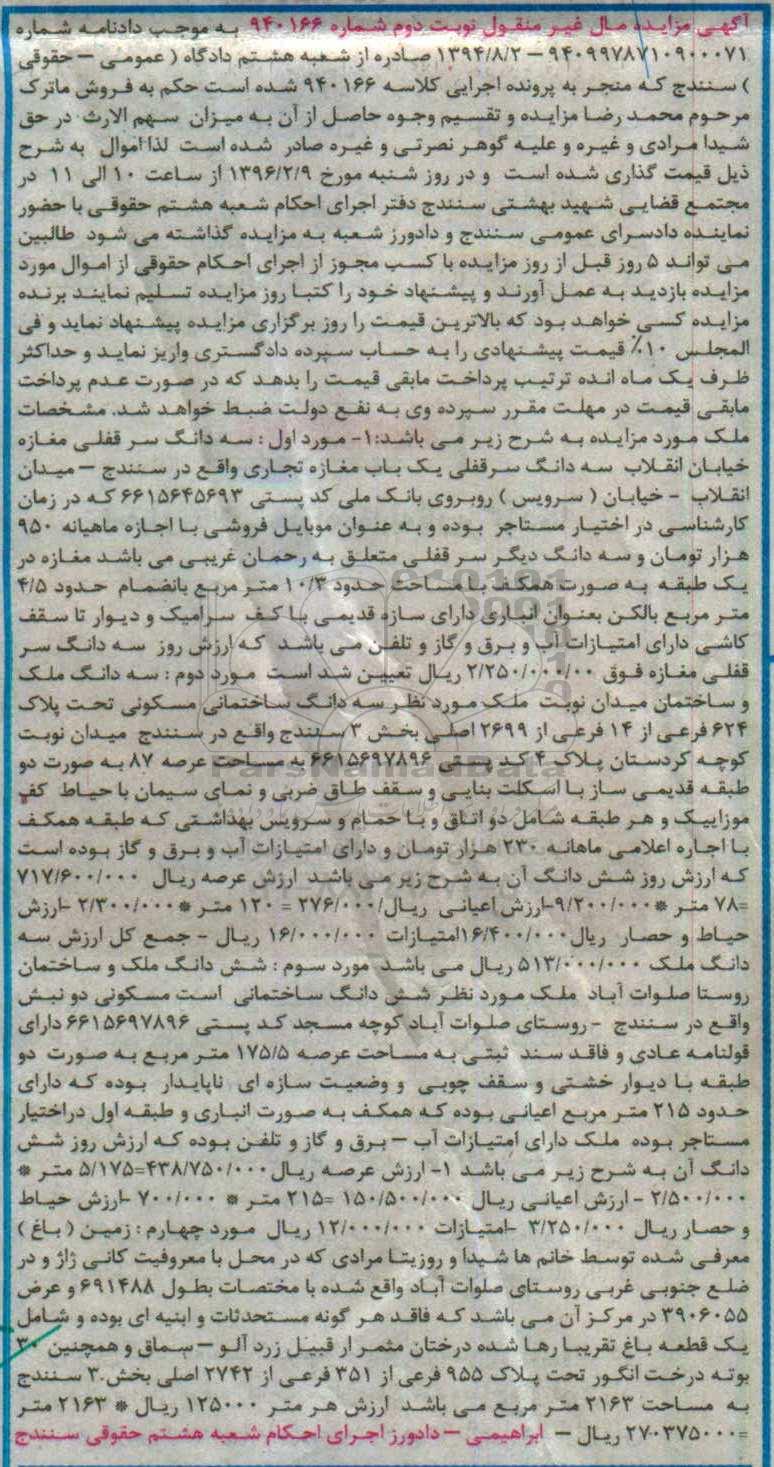 آگهی مزایده مال غیر منقول نوبت دوم شماره ۹۴۰۱۶۶ به موجب دادنامه شماره
۹۴۰۹۹۷۸۷۱۰۹۰۰۰۷۱ – ۱۳۹۴/۸/۲ صادره از شعبه هشتم دادگاه ( عمومی – حقوقی
) سنندج که منجر به پرونده اجرایی کلاسه ۹۴۰۱۶۶ شده است حکم به فروش ماترک
مرحوم محمد رضا مزایده و تقسیم وجوه حاصل از آن به میزان سهم الارث در حق
شیدا مرادی و غیره و علیه گوهر نصرتی و غیره صادر شده است لذا اموال به شرح
ذیل قیمت گذاری شده است و در روز شنبه مورخ ۱۳۹۶/۲/۹ از ساعت ۱۰ الی ۱۱ در
مجتمع قضایی شهید بهشتی سنندج دفتر اجرای احکام شعبه هشتم حقوقی با حضور
نماینده دادسرای عمومی سنندج و دادورز شعبه به مزایده گذاشته می شود طالبین
می تواند ۵ روز قبل از روز مزایده با کسب مجوز از اجرای احکام حقوقی از اموال مورد
مزایده بازدید به عمل آورند و پیشنهاد خود را کتبا روز مزایده تسلیم نمایند برنده
مزایده کسی خواهد بود که بالاترین قیمت را روز برگزاری مزایده پیشنهاد نماید و فی
المجلس ۱۰٪ قیمت پیشنهادی را به حساب سپرده دادگستری واریز نماید و حداکثر
ظرف یک ماه انده ترتیب پرداخت مابقی قیمت را بدهد که در صورت عدم پرداخت
مابقی قیمت در مهلت مقرر سپرده وی به نفع دولت ضبط خواهد شد. مشخصات
ملک مورد مزایده به شرح زیر می باشد:۱- مورد اول : سه دانگ سر قفلی مغازه
خیابان انقلاب سه دانگ سرقفلی یک باب مغازه تجاری واقع در سنندج – میدان
انقلاب - خیابان ( سرویس ) روبروی بانک ملی کد پستی ۶۶۱۵۶۴۵۶۹۳ که در زمان
کارشناسی در اختیار مستاجر بوده و به عنوان موبایل فروشی با اجازه ماهیانه ۹۵۰
هزار تومان و سه دانگ دیگر سر قفلی متعلق به رحمان غریبی می باشد مغازه در
یک طبقه به صورت همکف با مساحت حدود ۱۰/۳ متر مربع بانضمام حدود ۴/۵
متر مربع بالکن بعنوان انباری دارای سازه قدیمی با کف سرامیک و دیوار تا سقف
کاشی دارای امتیازات آب و برق و گاز و تلفن می باشد که ارزش روز سه دانگ سر
قفلی مغازه فوق ۲/۲۵۰/۰۰۰/۰۰ ریال تعیین شد است مورد دوم : سه دانگ ملک
و ساختمان میدان نوبت ملک مورد نظر سه دانگ ساختمانی مسکونی تحت پلاک
۶۲۴ فرعی از ۱۴ فرعی از ۲۶۹۹ اصلی بخش ۳ سنندج واقع در سنندج میدان نوبت
کوچه کردستان پلاک ۴ کد پستی ۶۶۱۵۶۹۷۸۹۶ به مساحت عرصه ۸۷ به صورت دو
طبقه قدیمی ساز با اسکلت بنایی و سقف طاق ضربی و نمای سیمان با حیاط کف
موزاییک و هر طبقه شامل دو اتاق و با حمام و سرویس بهداشتی که طبقه همکف
با اجاره اعلامی ماهانه ۲۳۰ هزار تومان و دارای امتیازات آب و برق و گاز بوده است
که ارزش روز شش دانگ آن به شرح زیر می باشد ارزش عرصه ریال ۷۱۷/۶۰۰/۰۰۰
=۷۸ متر *۹/۲۰۰/۰۰۰-ارزش اعیانی ریال/۲۷۶/۰۰۰ = ۱۲۰ متر *۲/۳۰۰/۰۰۰ -ارزش
حیاط و حصار ریال ۱۶/۴۰۰/۰۰۰امتیازات ۱۶/۰۰۰/۰۰۰ ریال - جمع کل ارزش سه
دانگ ملک ۵۱۳/۰۰۰/۰۰۰ ریال می باشد مورد سوم : شش دانگ ملک و ساختمان
روستا صلوات آباد ملک مورد نظر شش دانگ ساختمانی است مسکونی دو نبش
واقع در سنندج - روستای صلوات آباد کوچه مسجد کد پستی ۶۶۱۵۶۹۷۸۹۶ دارای
قولنامه عادی و فاقد سند ثبتی به مساحت عرصه ۱۷۵/۵ متر مربع به صورت دو
طبقه با دیوار خشتی و سقف چوبی و وضعیت سازه ای ناپایدار بوده که دارای
حدود ۲۱۵ متر مربع اعیانی بوده که همکف به صورت انباری و طبقه اول دراختیار
مستاجر بوده ملک دارای امتیازات آب – برق و گاز و تلفن بوده که ارزش روز شش
دانگ آن به شرح زیر می باشد ۱- ارزش عرصه ریال ۴۳۸/۷۵۰/۰۰۰=۵/۱۷۵ متر *
۲/۵۰۰/۰۰۰ - ارزش اعیانی ریال ۱۵۰/۵۰۰/۰۰۰ =۲۱۵ متر * ۷۰۰/۰۰۰ -ارزش حیاط
و حصار ریال ۳/۲۵۰/۰۰۰ -امتیازات ۱۲/۰۰۰/۰۰۰ ریال مورد چهارم : زمین ( باغ )
معرفی شده توسط خانم ها شیدا و روزیتا مرادی که در محل با معروفیت کانی ژاژ و در
ضلع جنوبی غربی روستای صلوات آباد واقع شده با مختصات بطول ۶۹۱۴۸۸ و عرض
۳۹۰۶۰۵۵ در مرکز آن می باشد که فاقد هر گونه مستحدثات و ابنیه ای بوده و شامل
یک قطعه باغ تقریبا رها شده درختان مثمر ار قبیل زرد آلو – سماق و همچنین ۳۰
بوته درخت انگور تحت پلاک ۹۵۵ فرعی از ۳۵۱ فرعی از ۲۷۴۲ اصلی بخش ۳ سنندج
به مساحت ۲۱۶۳ متر مربع می باشد ارزش هر متر ۱۲۵۰۰۰ ریال * ۲۱۶۳ متر
=۲۷۰۳۷۵۰۰۰ ریال – ابراهیمی – دادورز اجرای احکام شعبه هشتم حقوقی سنندج
ParsNamadData